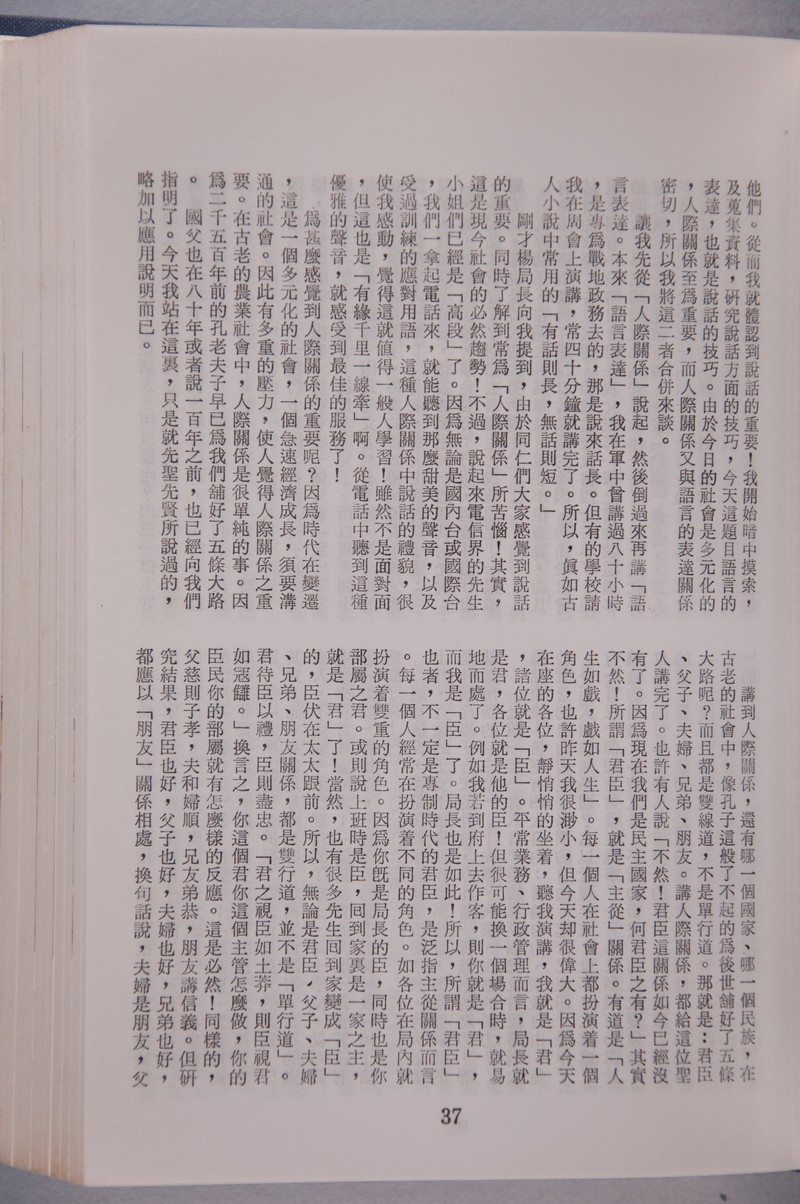 他們。從而我就體認到說話的重要！我開始暗中摸索，
及蒐集資料，研究說話方面的技巧，今天這題目語言的
表達，也就是說話的技巧。由於今日的社會是多元化的
，人際關係至爲重要，而人際關係又與語言的表達關係
密切，所以我將這二者合併來談。
讓我先從「人際關係」說起，然後倒過來再講「語
言表達」。本來「語言表達」，我在軍中曾講過八十小時
，是專爲戰地政務去的，那是說來話長。但有的學校請
我在周會上演講，常四十分鐘就講完了。所以，眞如古
人小說中常用的「有話則長，無話則短。」
剛才楊局長向我提到，由於同仁們大家感覺到說話
的重要。同時了解到常爲「人際關係」所苦惱！其實，
這是現今社會的必然趨勢！不過，說起來電信界的先生
小姐們巳經是「高段」了。因爲無論是國內台或國際台
，我們一拿起電話來，就能聽到那麼甜美的聲音，以及
受過訓練的應對用語，這種人際關係中說話的禮貌，很
使我感動，覺得這就値得一般人學習！雖然不是面對面
，但這也是「有緣千里一線牽」啊。從電話中聽到這種
優雅的聲音，就感受到最佳的服務了！
爲甚麼感覺到人際關係的重要呢？因爲時代在變遷
，這是一個多元化的社會，一個急速經濟成長，須要溝
通的社會。因此有多重的壓力，使人覺得人際關係之重
要。在古老的農業社會中，人際關係是很單純的事。因
爲二千五百年前的孔老夫子早巳爲我們舖好了五條大路
。國父也在八十年或者說一百年之前，也已經向我們
指明了。今天我站在這裏，只是就先聖先賢所說過的，
略加以應用說明而已。
講到人際關係，還有哪一個國家、哪一個民族，在
古老的社會中，像孔子這般了不起的爲後世舖好了五條
大路呢？而且都是雙線道，不是單行道。那就是：君臣
、父子、夫婦、兄弟、朋友。講人際關係，都給這位聖
人講完了。也許有人說「不然！君臣這關係如今巳經沒
有了。因爲現在我們是民主國家，何君臣之有？」其實
不然！所謂「君臣」，就是「主從」關係。有道是「人
生如戲，戲如人生」。每一個人在社會上都扮演着一個
角色，也許昨天我很渺小，但今天却很偉大。因爲今天
在座的各位，靜悄悄的坐着，聽我演講，我就是「君」
，諸位就是「臣」。平常業務、行政管理而言，局長就
是君，各位就是他的臣！但很可能換一個場合時，就易
地而處了。例如我若到府上去作客，則你就是「君」，
而我是「臣」了。局長也是如此！所以，所謂「君臣」
也者，不一定是專制時代的君臣，是泛指主從關係而言
。每一個人經常在扮演着不同的角色。如各位在局內就
扮演着雙重的角色。因爲你旣是局長的臣，同時也是你
部屬之君。或則說上班時是臣，囘到家裏是一家之主，
就是「君」了！當然，也有很多先生囘到家變成「臣」
的，臣伏在太太跟前。所以，無論是君臣，父子、夫婦
、兄弟、朋友關係，都是雙行道，並不是「單行道」。
君待臣以禮，臣則盡忠。「君之視臣如土莽，則臣視君
如寇讎。」換言之，你這個君你這個主管怎麼做，你的
臣民你的部屬就有怎麼樣的反應。這是必然！同樣的，
父慈則子孝，夫和婦順，兄友弟恭，朋友講信義。但研
究結果，君臣也好，父子也好，夫婦也好，兄弟也好，
都應以「朋友」關係相處，換句話說，夫婦是朋友，父
37